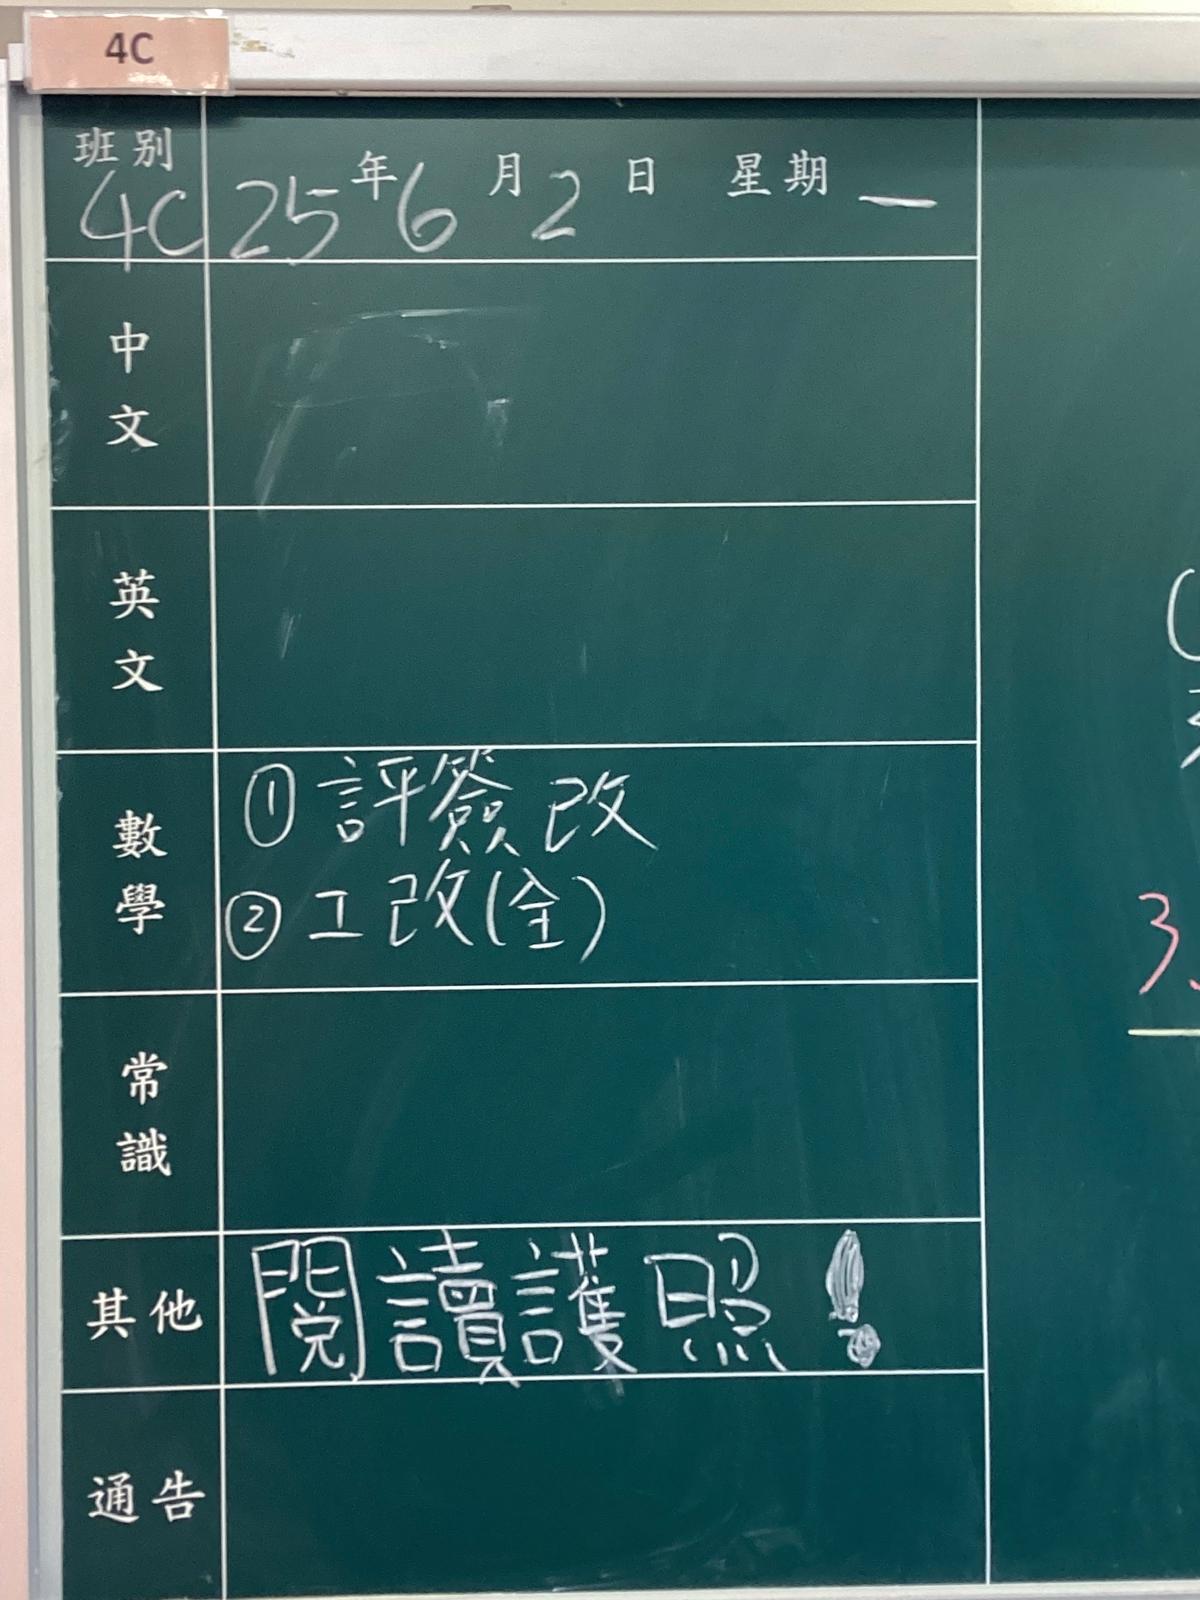 4C
班別 年 月 日 星期
4C 25 6 2 一
中文
英文
數學
① 評簽改
② 工改(全)
常識
其他
閱讀護照！
通告
3